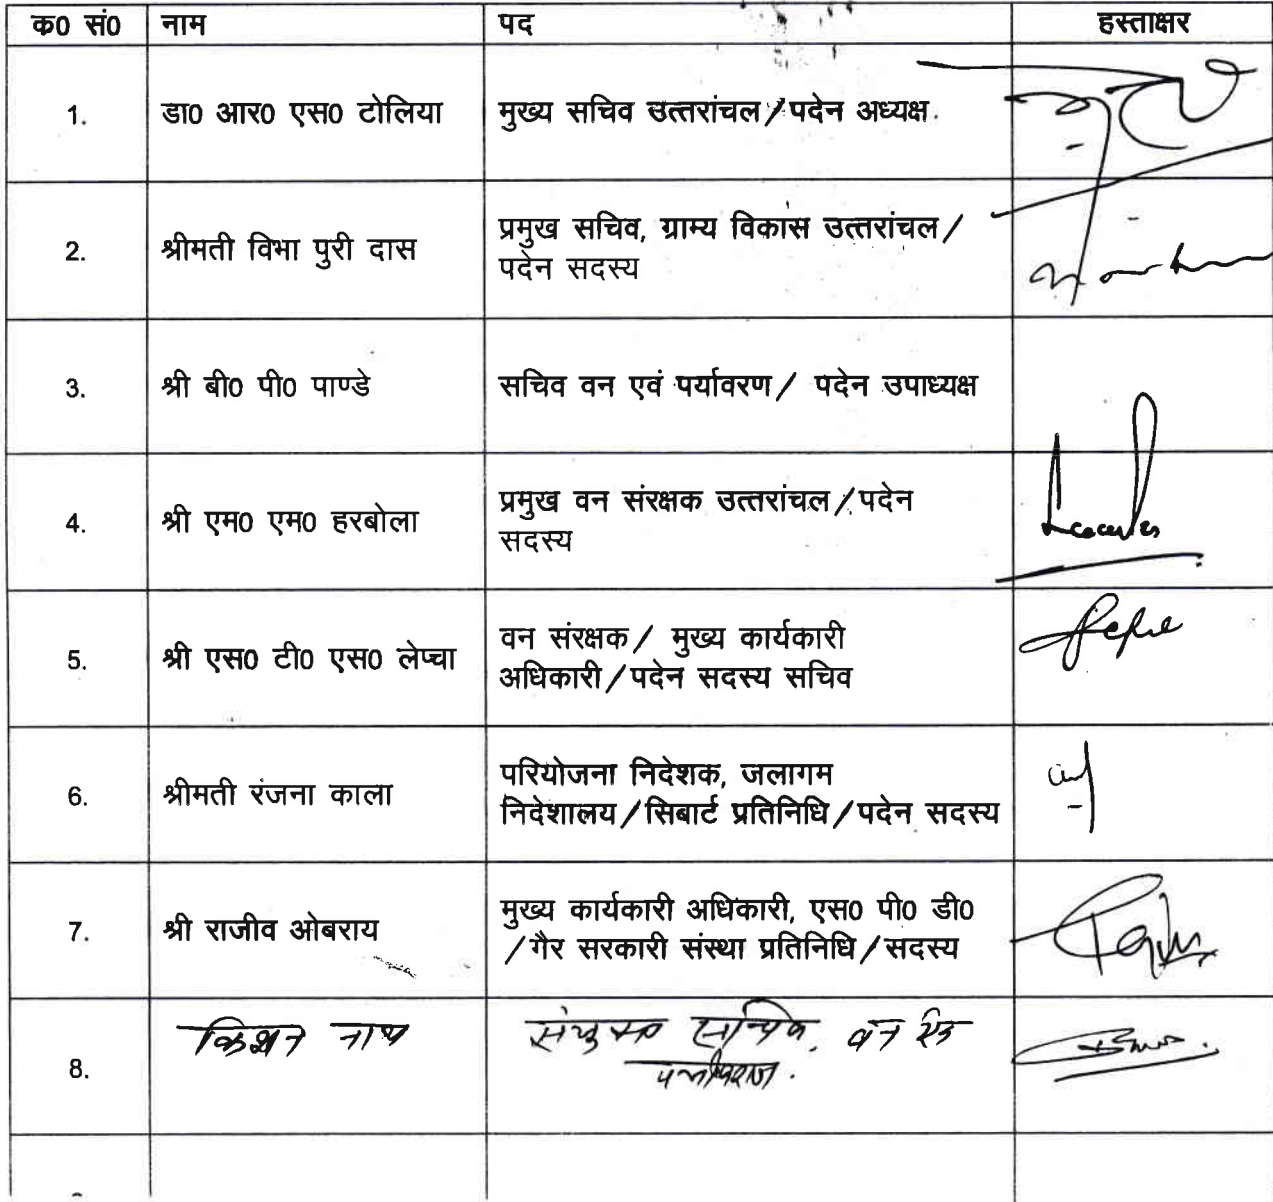 क0 सं0 नाम पद हस्ताक्षर
1. डा0 आर0 एस0 टोलिया मुख्य सचिव उत्तरांचल/पदेन अध्यक्ष
2. श्रीमती विभा पुरी दास प्रमुख सचिव, ग्राम्य विकास उत्तरांचल/
पदेन सदस्य
3. श्री बी0 पी0 पाण्डे सचिव वन एवं पर्यावरण/ पदेन उपाध्यक्ष
4. श्री एम0 एम0 हरबोला प्रमुख वन संरक्षक उत्तरांचल/पदेन
सदस्य
5. श्री एस0 टी0 एस0 लेप्चा वन संरक्षक/ मुख्य कार्यकारी
अधिकारी/पदेन सदस्य सचिव
6. श्रीमती रंजना काला परियोजना निदेशक, जलागम
निदेशालय/सिबार्ट प्रतिनिधि/पदेन सदस्य
7. श्री राजीव ओबराय मुख्य कार्यकारी अधिकारी, एस0 पी0 डी0
/गैर सरकारी संस्था प्रतिनिधि/सदस्य
8. किशन नाथ संयुक्त सचिव, वन एवं
पर्यावरण.